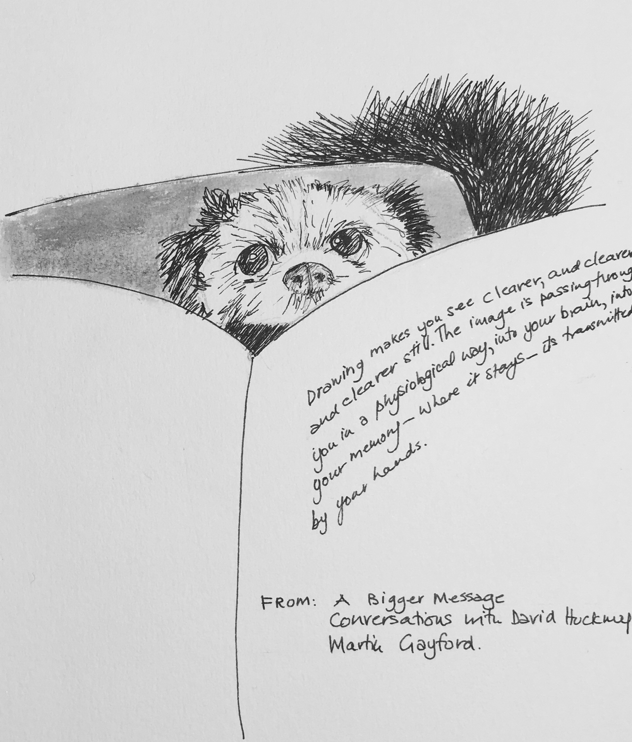 Drawing makes you see clearer, and clearer
and clearer still. The image is passing through
you in a physiological way, into your brain, into
your memory – where it stays – its transmitted
by your hands.
FROM: A Bigger Message
Conversations with David Hockney
Martin Gayford.